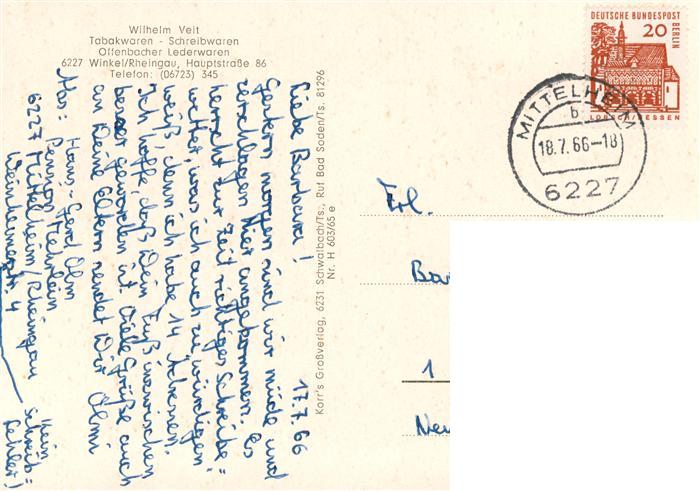 Wilhelm Veit
Tabakwaren - Schreibwaren
Offenbacher Lederwaren
6227 Winkel/Rheingau, Hauptstraße 86
Telefon: (06723) 345
17.7.66
Liebe Barbara!
Gestern morgen sind wir müde und
zerschlagen hier angekommen. Es
herrscht zur Zeit richtiges Schreibe=
wetter, was ich auch zu würdigen
weiß, denn ich habe 14 Adressen.
Ich hoffe, daß Dein Fuß inzwischen
besser geworden ist. Viele Grüße auch
an Deine Eltern sendet Dir Olmi
Abs: Hans-Gerd Olm
Pension Mehrlein
6227 Mittelheim/Rheingau
Weinheimerstr. 4
kein
Schreib=
fehler!
Korr's Großverlag, 6231 Schwalbach/Ts., Ruf Bad Soden/Ts. 81296
Nr. H 603/65 e
DEUTSCHE BUNDESPOST
BERLIN
20
LORSCH/HESSEN
MITTELHEIM
b
18.7.66-18
6227
Frl.
Bar
1
Neu